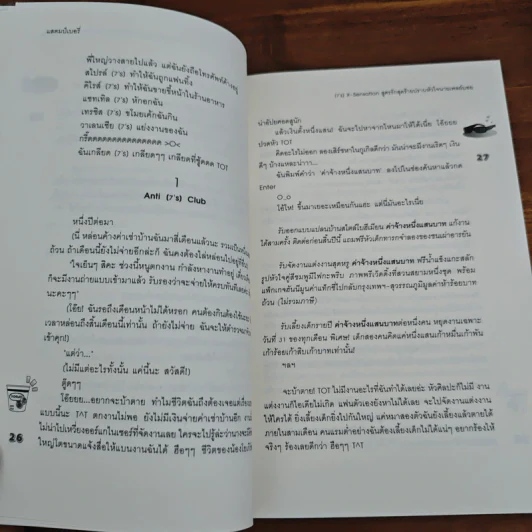 แสตมป์เบอรี่
พี่ใหญ่วางสายไปแล้ว แต่ฉันยังถือโทรศัพท์ค้างอยู่
สไปรส์ (7's) ทำให้ฉันถูกแฟนทิ้ง
คิไรส์ (7's) ทำให้ฉันขายขี้หน้าในร้านอาหาร
แซทเทิล (7's) หักอกฉัน
เทรซิส (7's) ขโมยเค้กฉันกิน
วาเลนเซีย (7's) แย่งงานของฉัน
กรี๊ดดดดดดดดดดดดดดดดดดด >O<
ฉันเกลียด (7's) เกลียดๆๆ เกลียดที่สู้ดดด TOT
1
Anti (7's) Club
หนึ่งปีต่อมา
(นี่ หล่อนค้างค่าเช่าบ้านฉันมาสี่เดือนแล้วนะ รวมเป็นหนึ่ง
ถ้วน ถ้าเดือนนี้ยังไม่จ่ายอีกล่ะก็ ฉันคงต้องไล่หล่อนไปอยู่ที่อื่น
"ใจเย็นๆ สิคะ ช่วงนี้หนูตกงาน กำลังหางานทำอยู่ เดี๋ยว
ก็จะมีงานถ่ายแบบเข้ามาแล้ว รับรองว่าจะจ่ายให้ครบทันที
นะคะๆๆ"
(โอ๊ย! ฉันรอถึงเดือนหน้าไม่ได้หรอก คนต้องกินต้องใช้นะ
เวลาหล่อนถึงสิ้นเดือนนี้เท่านั้น ถ้ายังไม่จ่าย ฉันจะให้ตำรวจ
เข้าคุก!)
"แต่ว่า..."
(ไม่มีแต่อะไรทั้งนั้น แค่นี้นะ สวัสดี!)
ตู๊ดๆๆ
โอ้ยยย...อยากจะบ้าตาย ทำไมชีวิตฉันถึงต้องเจอแต่เรื่อง
แบบนี้นะ TAT ตกงานไม่พอ ยังไม่มีเงินจ่ายค่าเช่าบ้านอีก งาน
ไม่น่าไปเหวี่ยงออร์แกไนเซอร์ที่จัดงานเลย ใครจะไปรู้ล่ะว่านาง
ใหญ่โตขนาดแจ้งสื่อให้แบนงานฉันได้ ฮือๆๆ ชีวิตของน้องใบ
26
(7's) X-Sensation สูตรรักสุดร้ายปราบหัวใจนายเพลย์บอย
น่าอัปยศอดสูนัก
แล้วเงินตั้งหนึ่งแสน! ฉันจะไปหาจากไหนมาให้ได้เนี่ย โอ้ยยย
ปวดหัว TOT
คิดอะไรไม่ออก ลองเสิร์ชหาในกูเกิลดีกว่า มันน่าจะมีงานเริดๆ เงิน
ดีๆ บ้างแหละน่าาา...
ฉันพิมพ์คำว่า 'ค่าจ้างหนึ่งแสนบาท' ลงไปในช่องค้นหาแล้วกด
Enter
O_o
โอ้โห! ขึ้นมาเยอะเหมือนกันแฮะ แต่นี่มันอะไรเนี่ย
27
รับออกแบบแปลนบ้านสไตล์โบฮีเมียน ค่าจ้างหนึ่งแสนบาท แก้งาน
ได้สามครั้ง ติดต่อก่อนสิ้นปีนี้ แถมฟรีหัวเด็กทารกจำลองของชนเผ่าอารยัน
รับจัดงานแต่งงานสุดหรู ค่าจ้างหนึ่งแสนบาท ฟรีน้ำแข็งแกะสลัก
รูปหัวใจคู่สีชมพูมีไฟกะพริบ ภาพพรีเวดดิ้งที่สวนสยามหนึ่งชุด พร้อม
แพ็กเกจฮันนีมูนค่าแท็กซี่ไปกลับกรุงเทพฯ-สุวรรณภูมิมูลค่าห้าร้อยบาท
ถ้วน (ไม่รวมภาษี)
รับเลี้ยงเด็กรายปี ค่าจ้างหนึ่งแสนบาทต่อหนึ่งคน หยุดงานเฉพาะ
วันที่ 31 ของทุกเดือน พิเศษ! เด็กสองคนคิดแค่หนึ่งแสนเก้าหมื่นเก้าพัน
เก้าร้อยเก้าสิบเก้าบาทเท่านั้น!
ฯลฯ
จะบ้าตาย! TOT ไม่มีงานอะไรที่ฉันทำได้เลยอ่ะ หัวศิลปะก็ไม่มี งาน
แต่งงานก็ไอเดียไม่เกิด แฟนตัวเองยังหาไม่ได้เลย จะไปจัดงานแต่งงาน
ให้ใครได้ ยิ่งเลี้ยงเด็กยิ่งไปกันใหญ่ แค่หมาสองตัวฉันยังเลี้ยงแล้วตายได้
ภายในสามเดือน คนแรมต่ำอย่างฉันต้องเลี้ยงเด็กไม่ได้แน่ๆ อยากร้องไห้
จริงๆ ร้องเลยดีกว่า ฮือๆๆ TOT